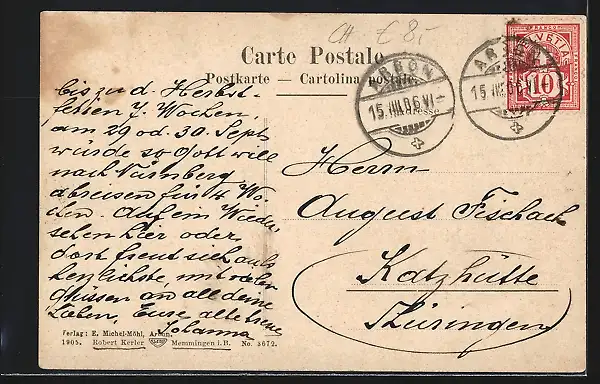 CH € 8,-
Carte Postale
Postkarte — Cartolina postale
Adresse
bis zu d. Herbst-
ferien 7. Wochen,
am 29 od. 30. Sept.
würde so Gott will
nach Nürnberg
abreisen für 4 Wo-
chen. Auf ein Wieder
sehen hier oder
dort freut sich aufs
herzlichste, mit vielen
Grüssen an all deine
Lieben, Eure alte treue
Johanna
Herrn
August Fischach
Katzhütte
Thüringen
ARBON
15.VIII.06.VI-
ARBON
15.VIII.06.VI-
FRANCO
HELVETIA
10
Verlag: E. Michel-Möhl, Arbon.
1905. Robert Kerler Memmingen i.B. No. 3672.